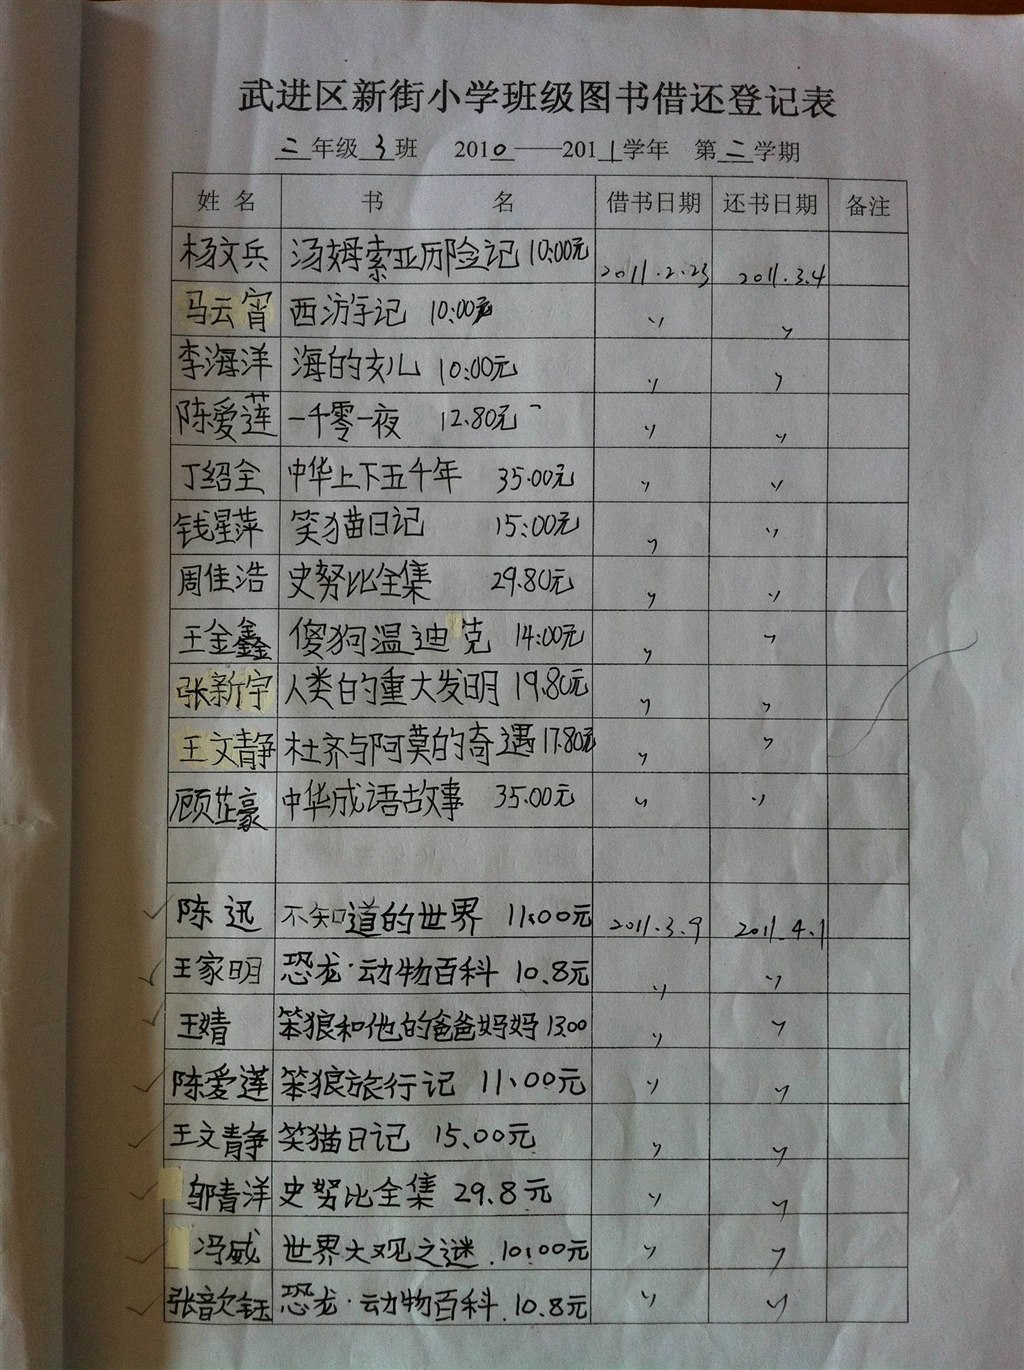 武进区新街小学班级图书借还登记表
二年级 3 班 2010——2011学年 第二学期
姓 名 书 名 借书日期 还书日期 备注
杨文兵 汤姆索亚历险记 10:00元 2011.2.23 2011.3.4
马云宵 西游记 10:00元 〃 〃
李海洋 海的女儿 10:00元 〃 〃
陈爱莲 一千零一夜 12.80元 〃 〃
丁绍全 中华上下五千年 35.00元 〃 〃
钱星萍 笑猫日记 15:00元 〃 〃
周佳浩 史努比全集 29.80元 〃 〃
王金鑫 傻狗温迪克 14:00元 〃 〃
张新宇 人类的重大发明 19.80元 〃 〃
王文静 杜齐与阿莫的奇遇 17.80元 〃 〃
顾芷豪 中华成语故事 35.00元 〃 〃
陈迅 不知道的世界 11.00元 2011.3.9 2011.4.1
王家明 恐龙·动物百科 10.8元 〃 〃
王婧 笨狼和他的爸爸妈妈 13.00 〃 〃
陈爱莲 笨狼旅行记 11、00元 〃 〃
王文静 笑猫日记 15.00元 〃 〃
邬青洋 史努比全集 29.8元 〃 〃
冯威 世界大观之谜.10:00元 〃 〃
张歆钰 恐龙·动物百科.10.8元 〃 〃